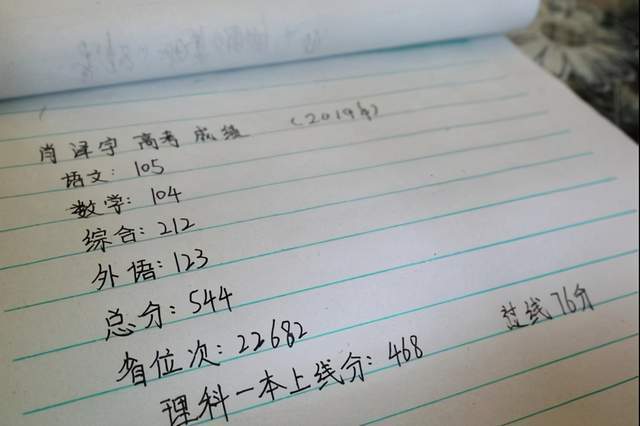 肖泽宇高考成绩 (2019年)
语文: 105
数学: 104
综合: 212
外语: 123
总分: 544
省位次: 22682
理科一本上线分: 468 过线76分